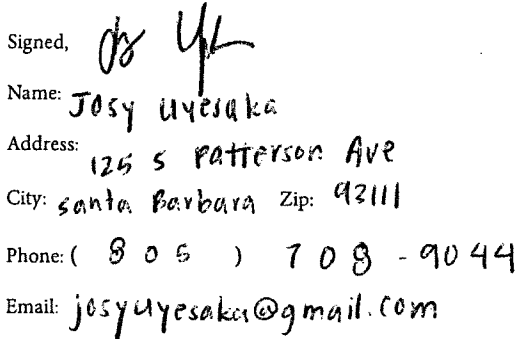 Signed,
Name: Josy Uyesaka
Address: 125 S Patterson Ave
City: Santa Barbara Zip: 93111
Phone: ( 805 ) 708 - 9044
Email: josyuyesaka@gmail.com